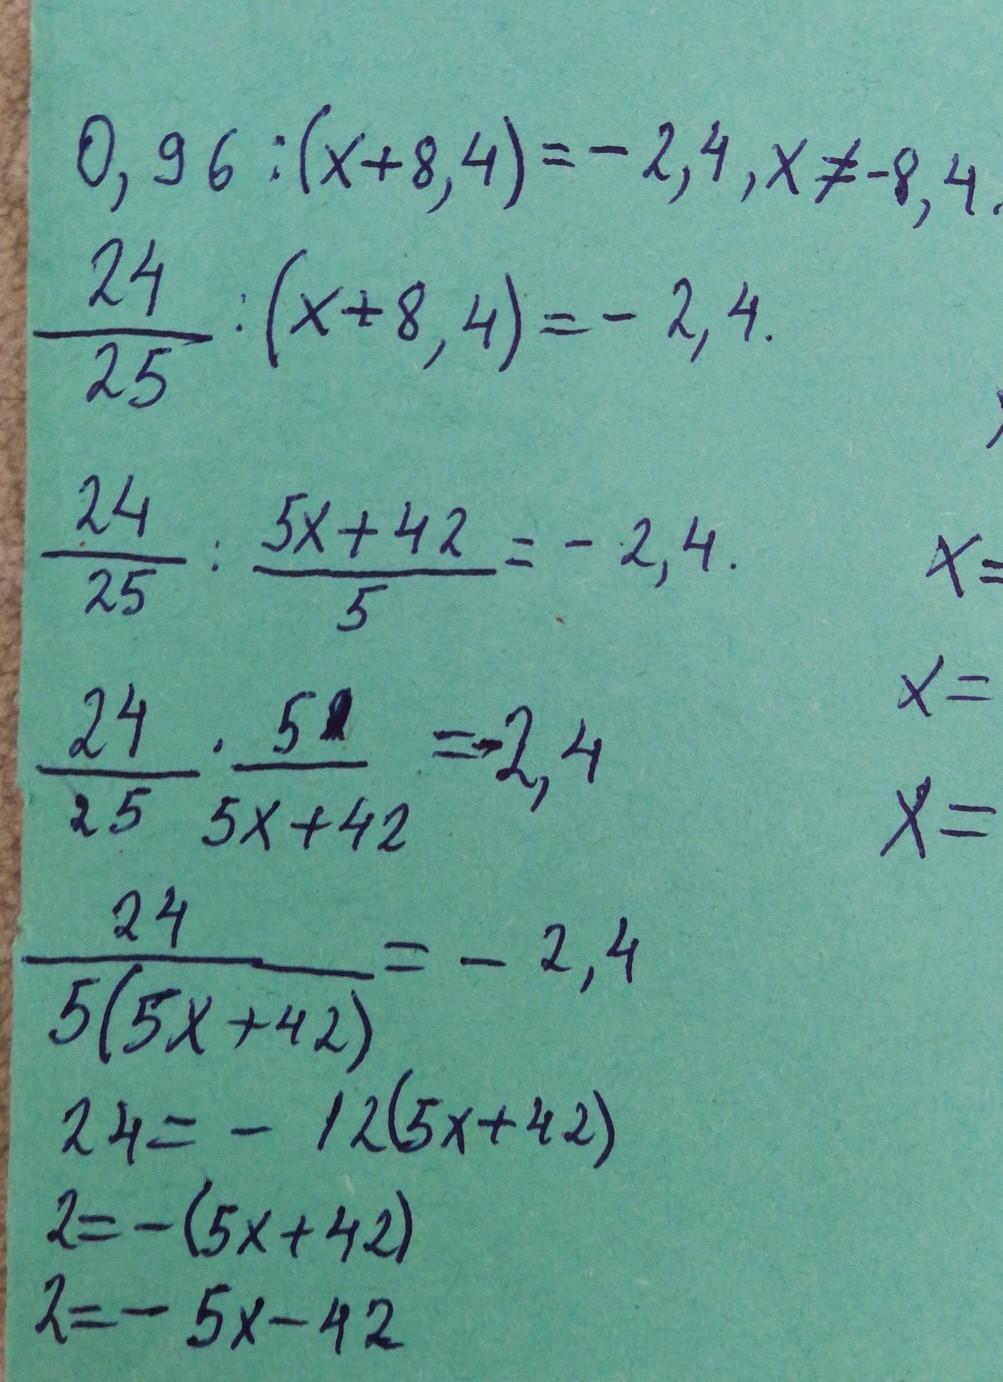 0,96:(x+8,4)=-2,4,x≠-8,4.
24/25:(x+8,4)=-2,4.
24/25:(5x+42)/5=-2,4.
24/25·5/(5x+42)=-2,4
24/(5(5x+42))=-2,4
24=-12(5x+42)
2=-(5x+42)
2=-5x-42
x=
x=
x=